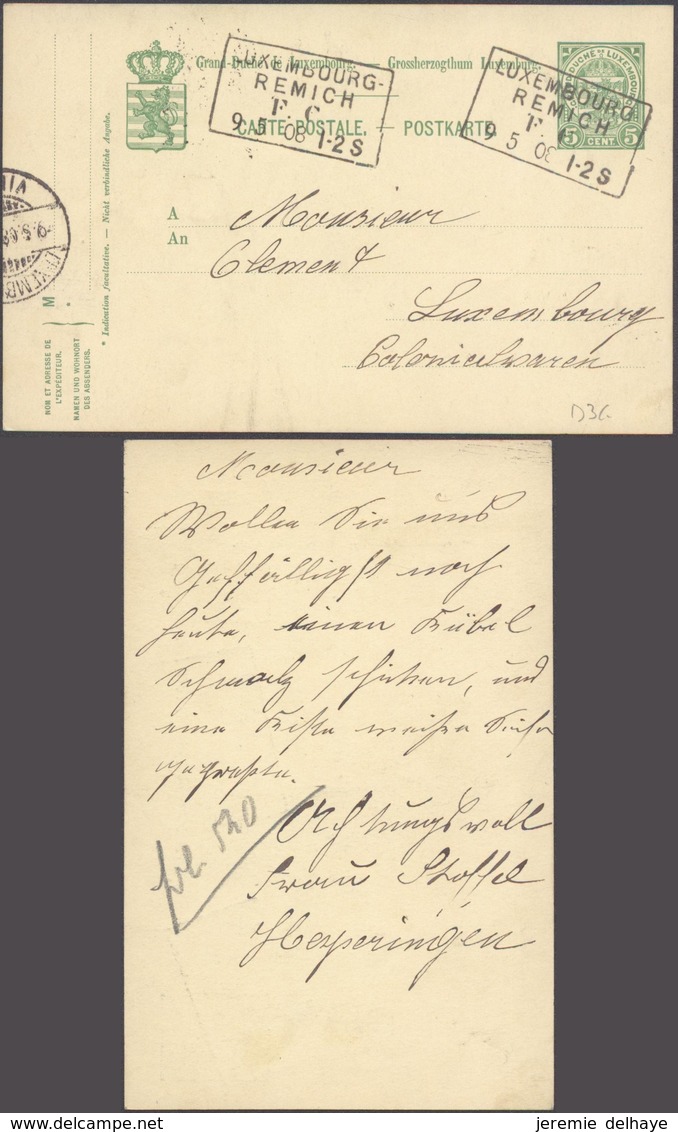 Grand-Duché de Luxembourg. — Grossherzogthum Luxemburg.
CARTE POSTALE. — POSTKARTE.
LUXEMBOURG-
REMICH
T. C
9 5 08 1-2 S
LUXEMBOURG
REMICH
T.
9 5 08 1-2 S
5 CENT. 5
A
An
Monsieur
Clement
Luxembourg
Colonialwaren
D36
M
* Indication facultative. — Nicht verbindliche Angabe.
NOM ET ADRESSE DE
L'EXPÉDITEUR.
NAMEN UND WOHNORT
DES ABSENDERS.
Monsieur
Wollen Sie uns
Geffälligst noch
heute, einen Kübel
Schmalz schicken, und
eine Kiste weißer Seife
Achtungsvoll
Frau Stoffel
Hesperingen
520
www.delcampe.net
jeremie delhaye